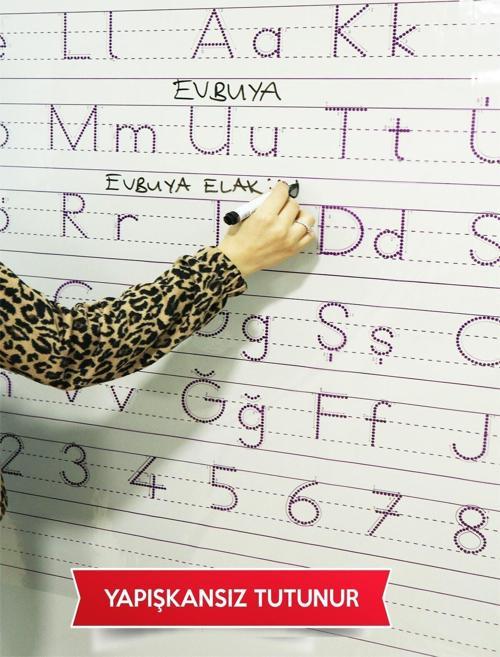 e Ll Aa Kk
EVBUYA
ö Mm Uu Tt Ü
EVBUYA ELAK
ö Rr I Dd S
C g Şş C
v v Ğğ Ff J
2 3 4 5 6 7 8
YAPIŞKANSIZ TUTUNUR